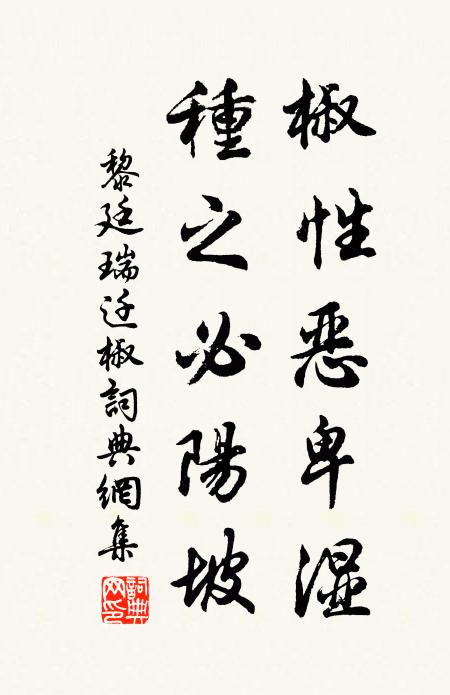 椒性恶卑湿
種之必陽坡
黎廷瑞迁椒詞典網集
詞典网印